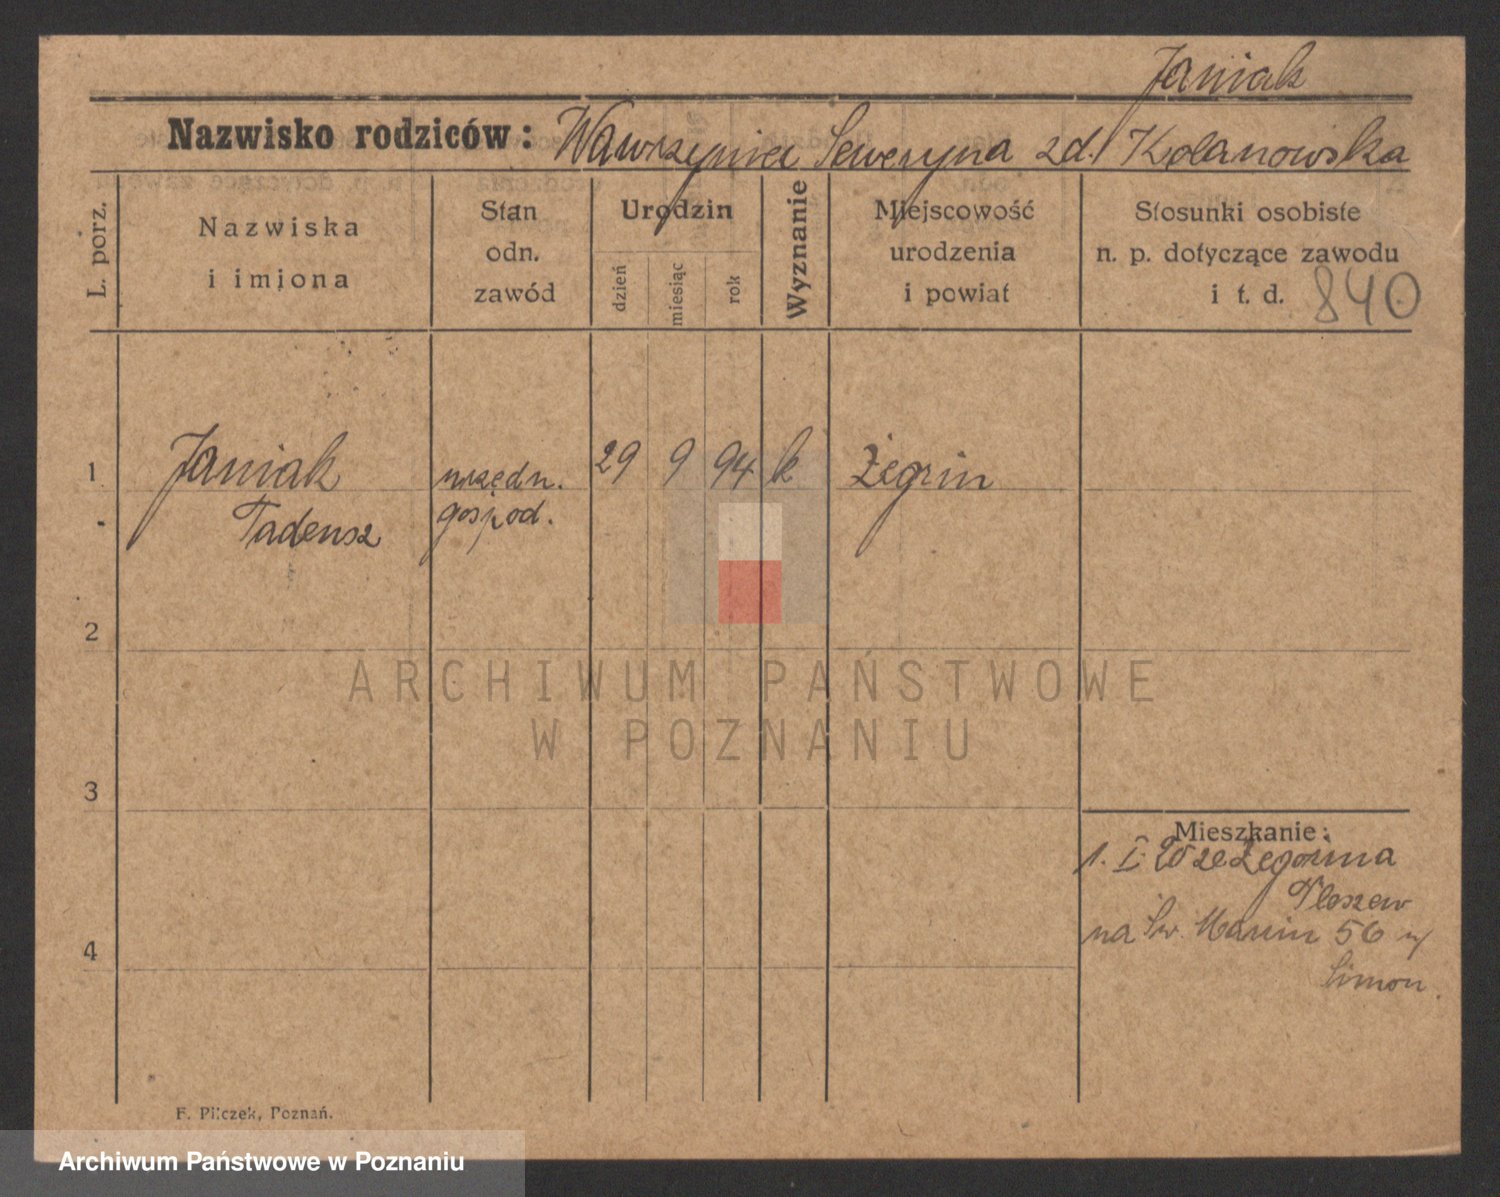 Janiak
Nazwisko rodziców: Wawrzyniec Seweryna zd. Kolanowska
L. porz.
Nazwiska
i imiona
Stan
odn.
zawód
Urodzin
dzień
miesiąc
rok
Wyznanie
Miejscowość
urodzenia
i powiat
Stosunki osobiste
n. p. dotyczące zawodu
i t. d. 840
1 Janiak urzędn. 29 9 94 k Żegrin
Tadeusz gospod.
2
ARCHIWUM PAŃSTWOWE
W POZNANIU
3
Mieszkanie:
1. I. ze
Pleszew
4
na Św. Marcin 56
Simon.
F. Pilczek, Poznań.
Archiwum Państwowe w Poznaniu